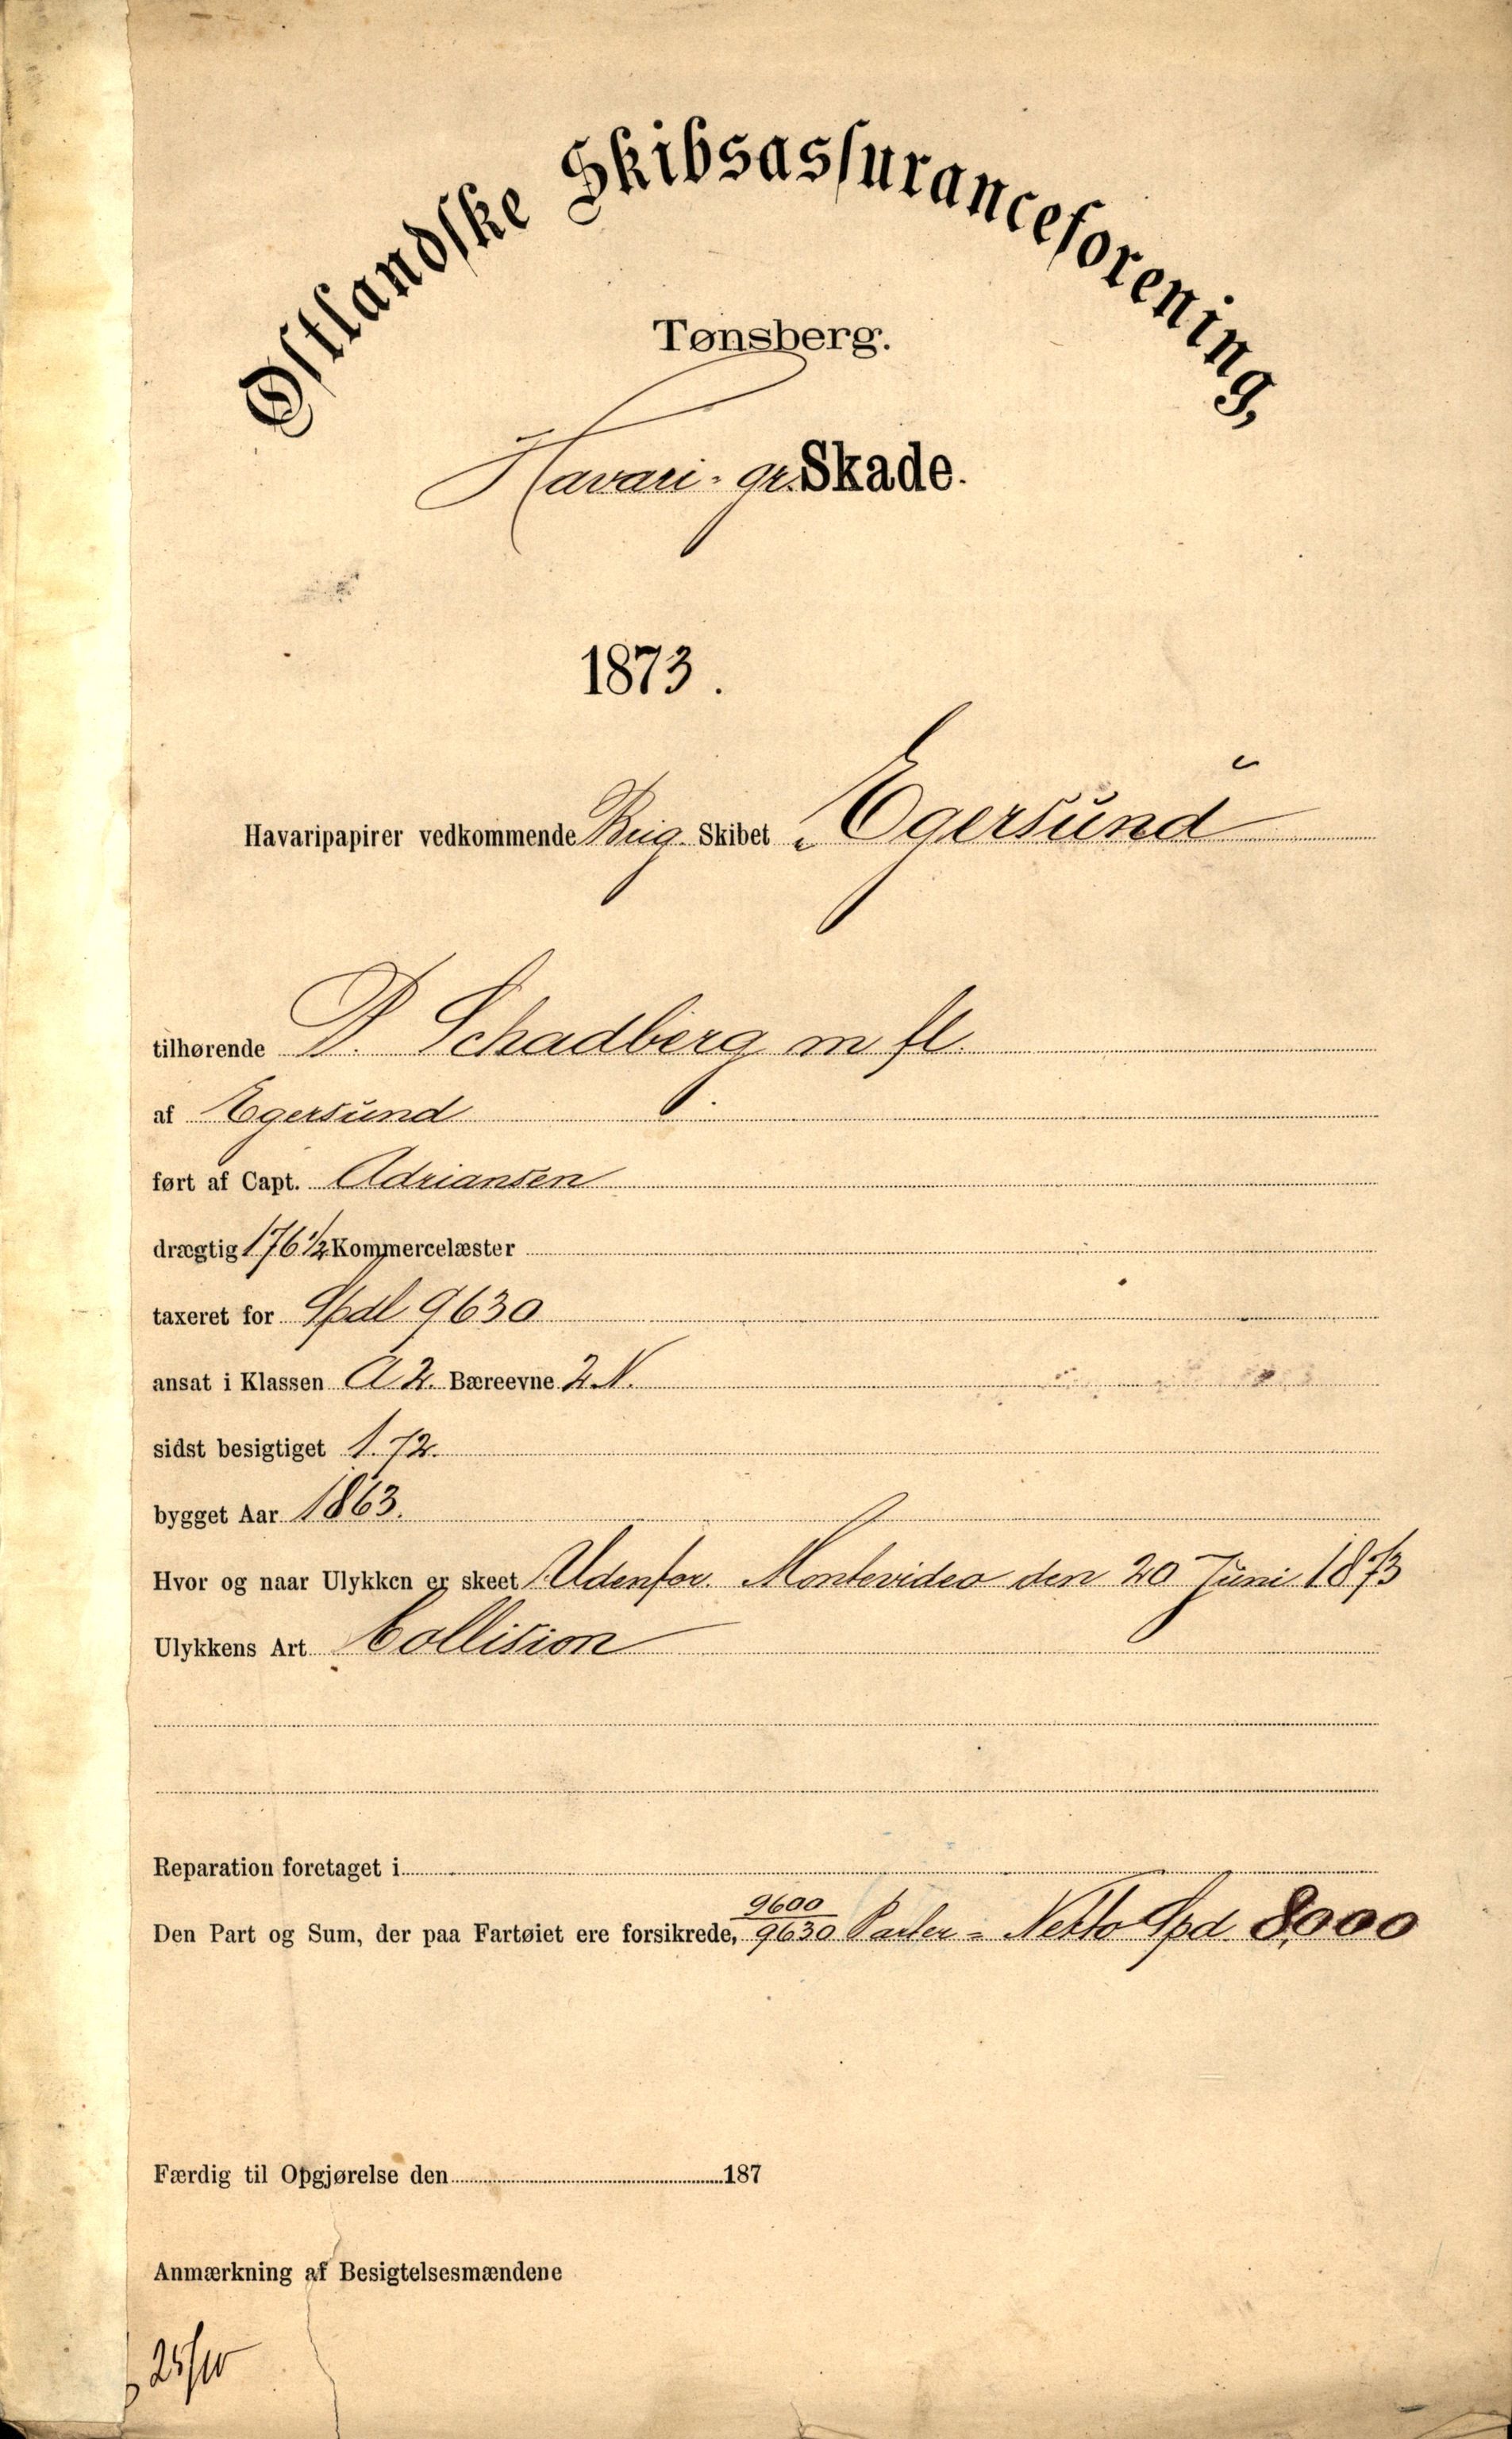 Østlandske Skibsassuranceforening,
Tønsberg.
Havari-gr. Skade.
1873.
Havaripapirer vedkommende Brig Skibet „Egersund“
tilhørende P. Schadberg m fl.
af Egersund
ført af Capt. Adriansen
drægtig 176 1/2 Kommercelæster
taxeret for Spdl 9630
ansat i Klassen A 2. Bæreevne 2 N.
sidst besigtiget 1. 72.
bygget Aar 1863.
Hvor og naar Ulykken er skeet Udenfor Montevideo den 20 Juni 1873
Ulykkens Art Collision
Reparation foretaget i
Den Part og Sum, der paa Fartøiet ere forsikrede, 9600/9630 Parter = Netto Spd 8,000
Færdig til Opgjørelse den 187
Anmærkning af Besigtelsesmændene
25/10